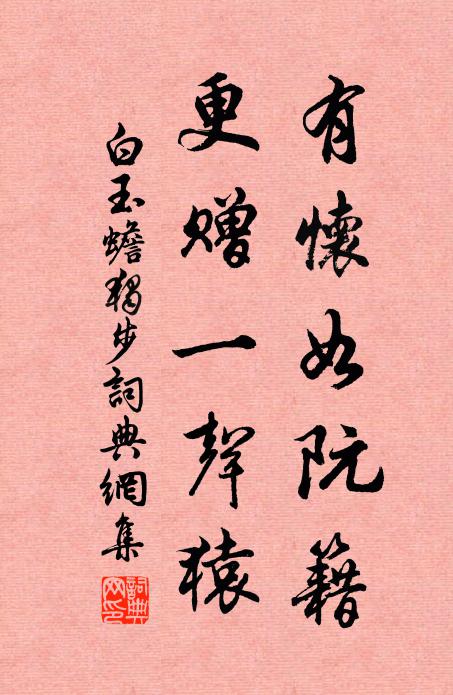 有懷如阮籍
更贈一聲猿
白玉蟾獨步詞典網集
詞典网印